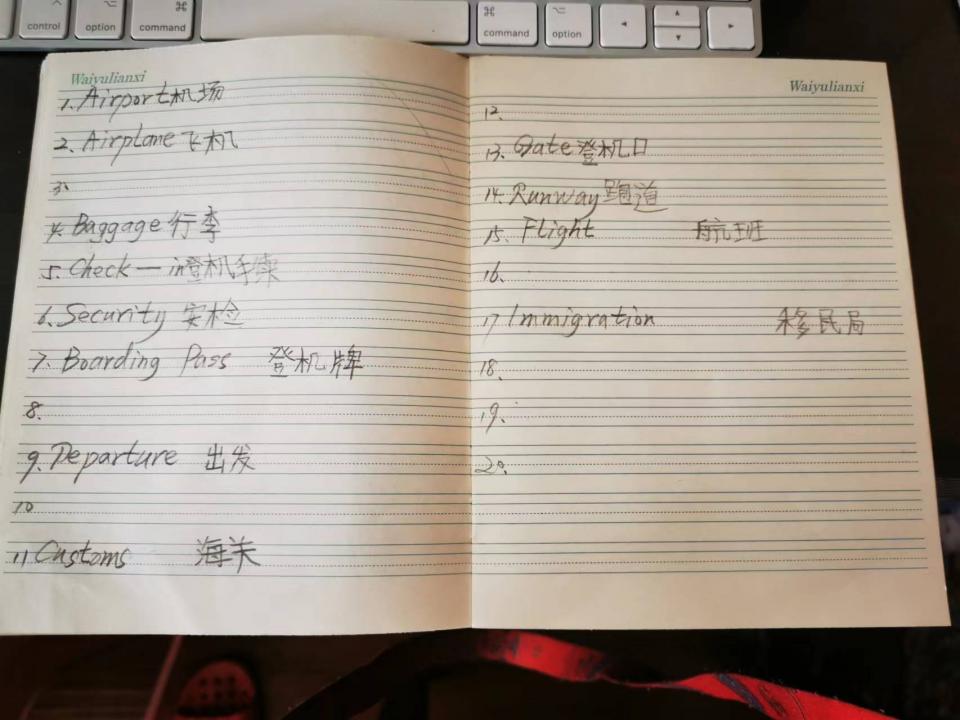 control
option
command
command
option
Waiyulianxi
1. Airport 机场
2. Airplane 飞机
3.
4. Baggage 行李
5. Check—in 登机手续
6. Security 安检
7. Boarding Pass 登机牌
8.
9. Departure 出发
10
11 Customs 海关
Waiyulianxi
12.
13. Gate 登机口
14. Runway 跑道
15. Flight 航班
16.
17 Immigration 移民局
18.
19.
20.